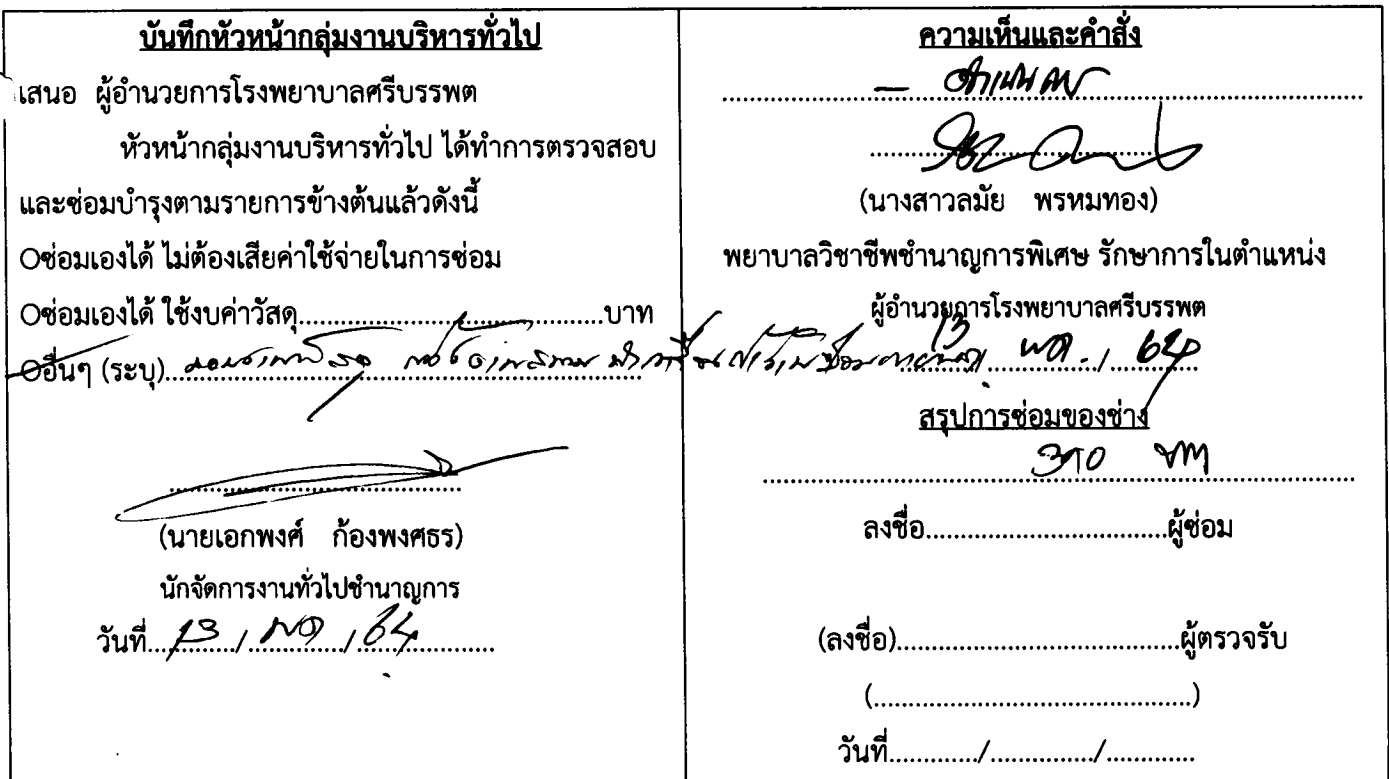 บันทึกหัวหน้ากลุ่มงานบริหารทั่วไป
เสนอ ผู้อำนวยการโรงพยาบาลศรีบรรพต
หัวหน้ากลุ่มงานบริหารทั่วไป ได้ทำการตรวจสอบ
และซ่อมบำรุงตามรายการข้างต้นแล้วดังนี้
Oซ่อมเองได้ ไม่ต้องเสียค่าใช้จ่ายในการซ่อม
Oซ่อมเองได้ ใช้งบค่าวัสดุ............................................บาท
Oอื่นๆ (ระบุ)
(นายเอกพงศ์ ก้องพงศธร)
นักจัดการงานทั่วไปชำนาญการ
วันที่ 13 / พค / 64
ความเห็นและคำสั่ง
(นางสาวลมัย พรหมทอง)
พยาบาลวิชาชีพชำนาญการพิเศษ รักษาการในตำแหน่ง
ผู้อำนวยการโรงพยาบาลศรีบรรพต
13 / พค. / 64
สรุปการซ่อมของช่าง
ลงชื่อ..................................ผู้ซ่อม
(ลงชื่อ).......................................ผู้ตรวจรับ
(............................................)
วันที่............./.............../.............